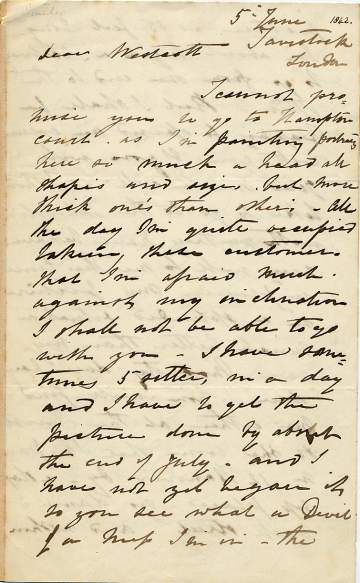 5 June 1842.
Tavistock
London
dear Westcott
I cannot pro-
mise you to go to Hampton
court. as I'm painting portraits
here so much a head all
shapes and sizes. but more
thick ones than others - All
the day I'm quite occupied
taking these customers
that I'm afraid much
against my inclination
I shall not be able to go
with you - I have some-
times 5 sitters, in a day
and I have to get the
picture done by about
the end of July - and I
have not yet began it,
so you see what a Devil
of a mess I'm in - the